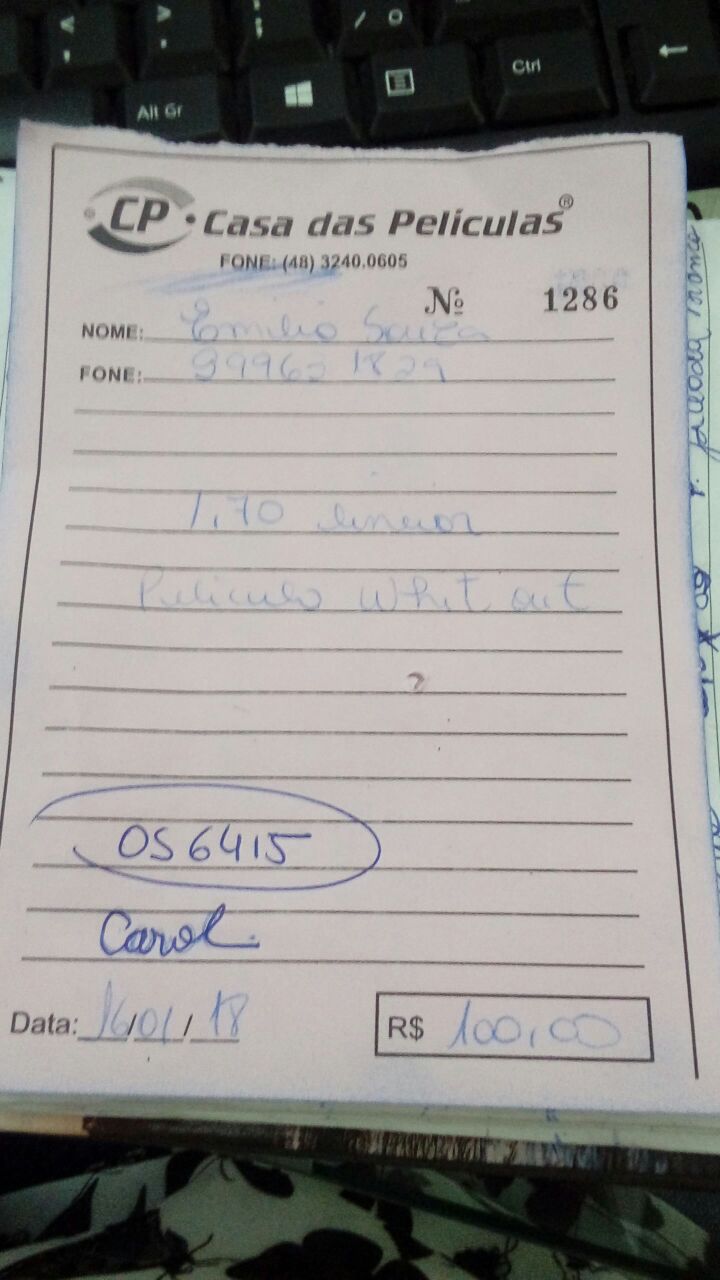 Alt Gr
Ctrl
CP
Casa das Películas®
FONE: (48) 3240.0605
Nº 1286
NOME: Emilio Souza
FONE: 99962 1829
1,70 linear
Pelicula Whit out
?
OS 6415
Carol
Data: 16/01/18
R$ 100,00